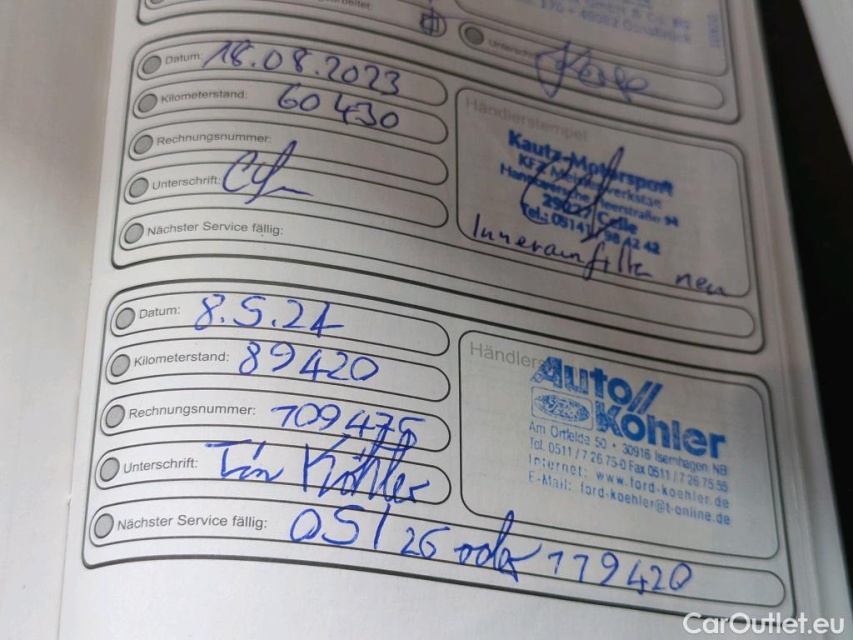 Unterschrift:
Datum: 18.08.2023
Kilometerstand: 60430
Rechnungsnummer:
Unterschrift:
Nächster Service fällig:
Händlerstempel
Kautz-Motorsport
KFZ-Meisterwerkstatt
Hannoversche Heerstraße 94
Celle
Tel.: 05141
Innenraumfilter neu
Datum: 8.5.24
Kilometerstand: 89420
Rechnungsnummer: 709475
Unterschrift: Tim Köhler
Nächster Service fällig: 05/26 oder 119420
Händlers
Auto
Köhler
Am Ortfelde 50 · 30916 Isernhagen NB
Tel. 0511/7 26 75-0 Fax 0511/7 26 75 55
Internet: www.ford-koehler.de
E-Mail: ford-koehler@t-online.de
CarOutlet.eu